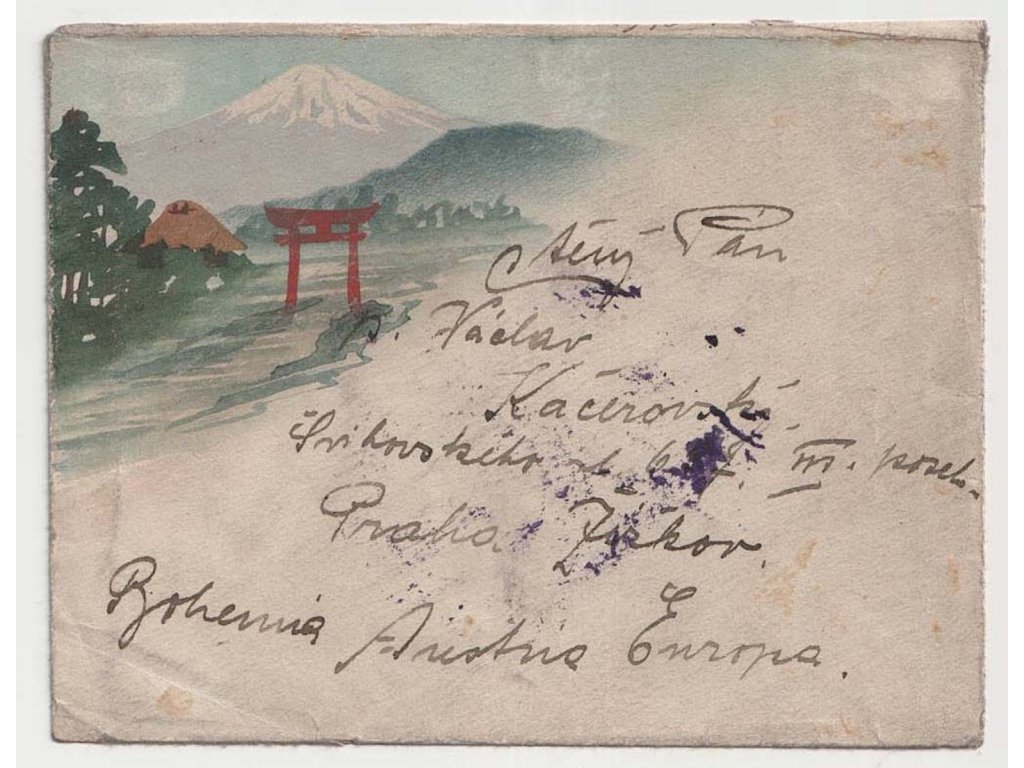 Ctěný Pán
p. Václav
Káčerovský
Švihovského ul. 6
III. poscho-
Praha Žižkov.
Bohemia Austria Europa.